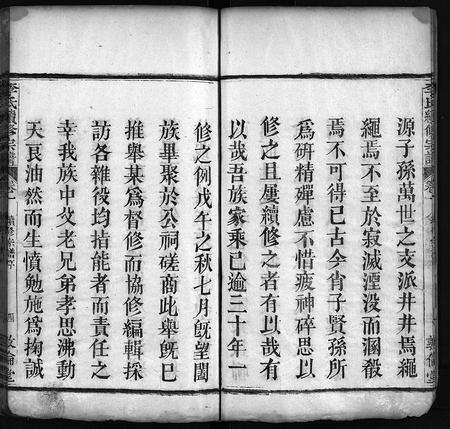 源子孫萬世之支派井井焉繩
繩焉不至於寂滅湮没而溷殽
焉不可得已古今肖子賢孫所
為研精殫慮不惜疲神碎思以
修之且屢續修之者有以哉有
以哉吾族家乘已逾三十年一
修之例戊午之秋七月旣望闔
族畢聚於公祠磋商此舉旣已
推舉某為督修而協修編輯採
訪各雜役均揞能者而責任之
幸我族中父老兄弟孝思沸動
天良油然而生憤勉施為掬誠
李氏續修宗譜 卷一
敦倫堂